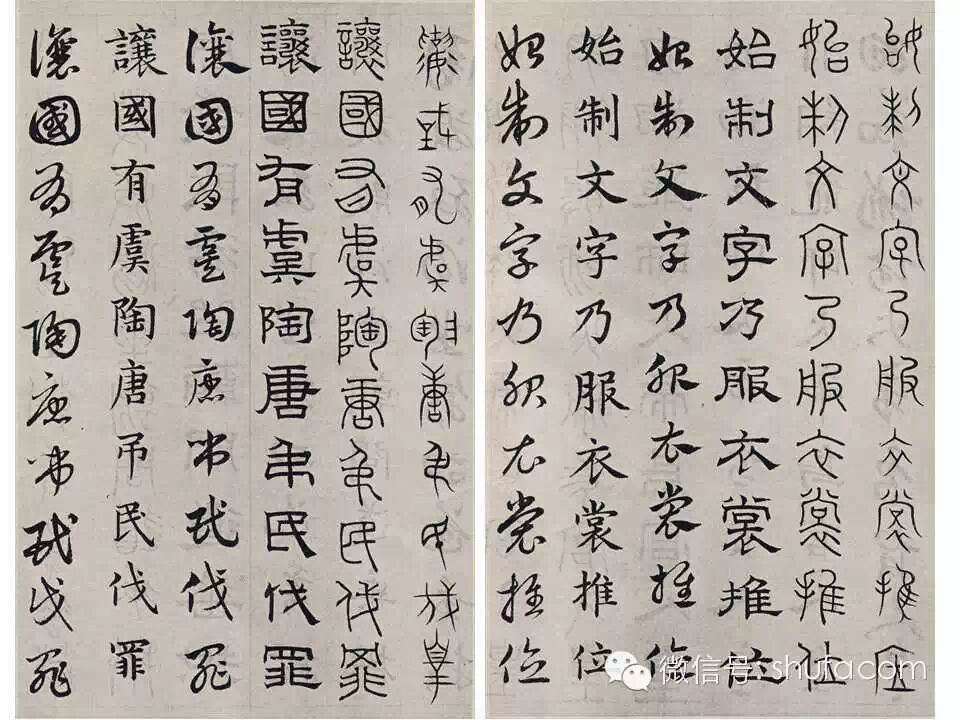 始制文字乃服衣裳推位
始制文字乃服衣裳推位
始制文字乃服衣裳推位
始制文字乃服衣裳推位
始制文字乃服衣裳推位
始制文字乃服衣裳推位
讓國有虞陶唐弔民伐罪
讓國有虞陶唐弔民伐罪
讓國有虞陶唐弔民伐罪
讓國有虞陶唐弔民伐罪
讓國有虞陶唐吊民伐罪
讓國有虞陶唐弔民伐罪
微信号: shufacom